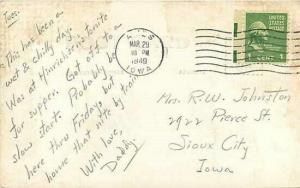 Tues.
This has been a
wet & chilly day.
Was at Hinrichsens tonite
for supper. Got off to a
slow start. Probably be
here thru Friday but
home that nite by train.
With love,
Daddy
AMES
MAR 29
PM
1949
IOWA
1 CENT 1
Mrs. R.W. Johnston
2922 Pierce St.
Sioux City
Iowa